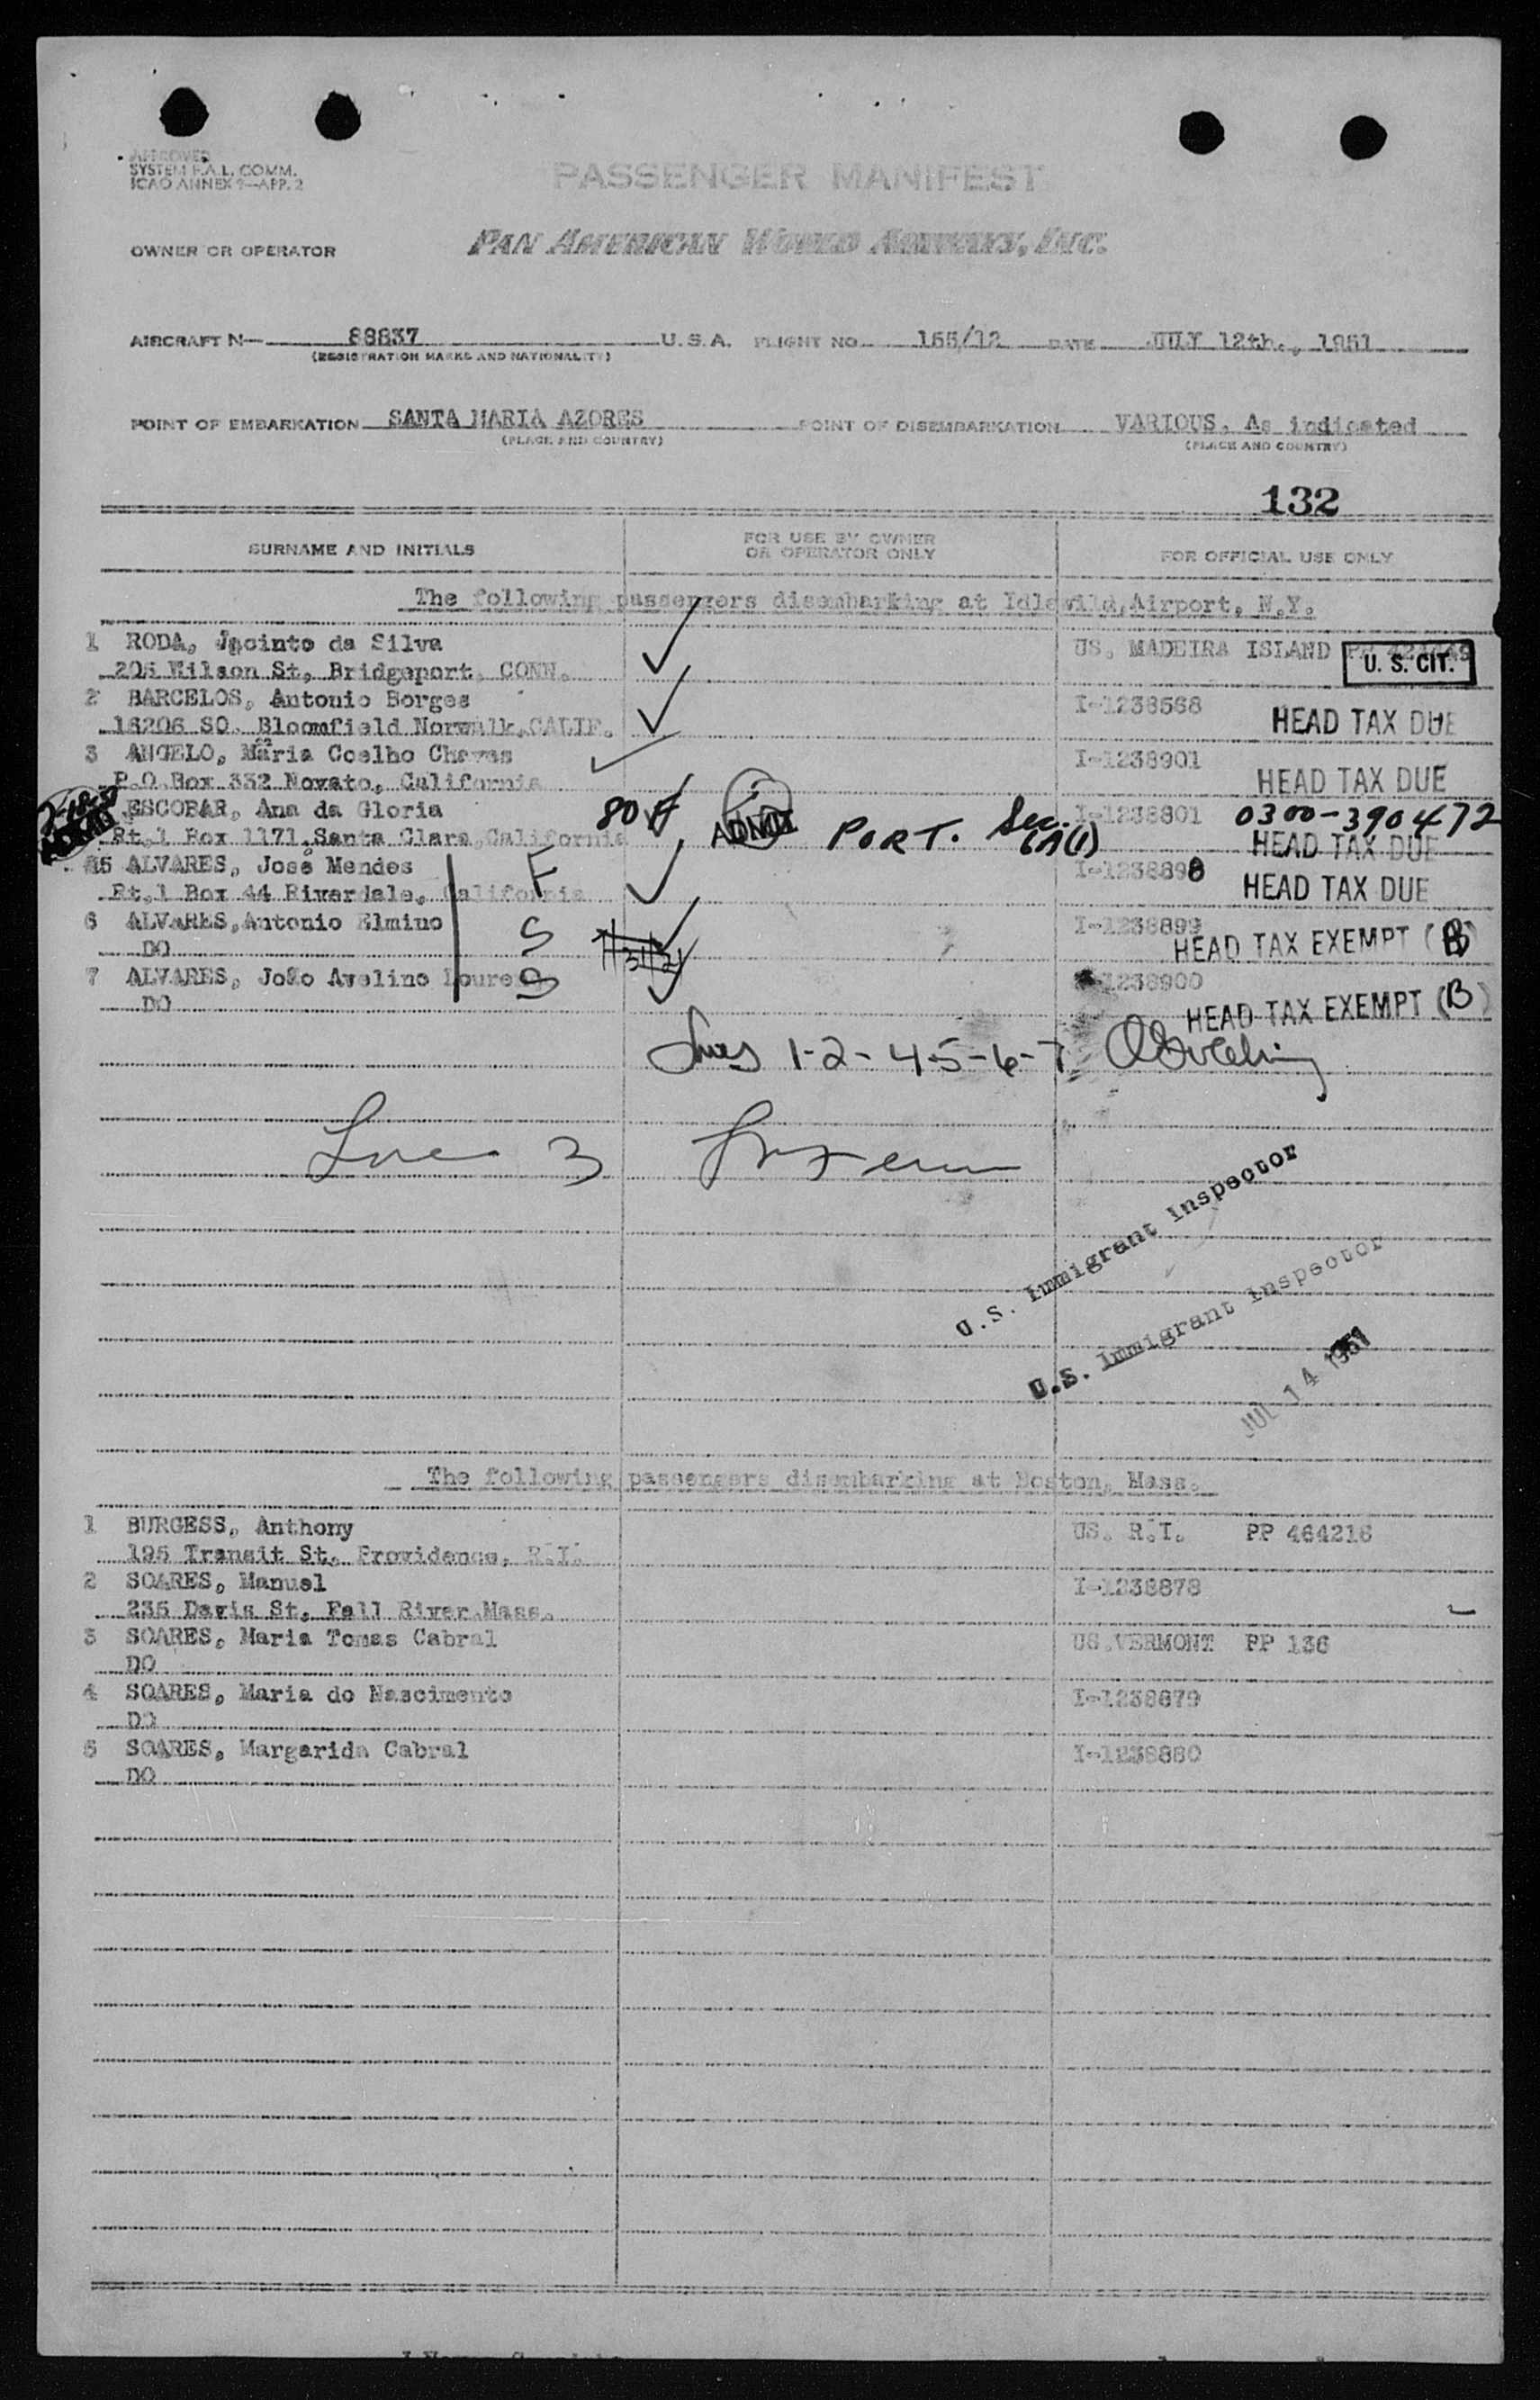 APPROVED
SYSTEM F.A.L. COMM.
ICAO ANNEX 9—APP. 2
PASSENGER MANIFEST
OWNER OR OPERATOR PAN AMERICAN WORLD AIRWAYS, INC.
AIRCRAFT N— 88837 U.S.A. FLIGHT NO. 155/12 DATE JULY 12th., 1951
(REGISTRATION MARKS AND NATIONALITY)
POINT OF EMBARKATION SANTA MARIA AZORES POINT OF DISEMBARKATION VARIOUS, As indicated
(PLACE AND COUNTRY) (PLACE AND COUNTRY)
132
SURNAME AND INITIALS FOR USE BY OWNER OR OPERATOR ONLY FOR OFFICIAL USE ONLY
The following passengers disembarking at Idlewild, Airport, N.Y.
1 RODA, Jacinto da Silva US, MADEIRA ISLAND
205 Wilson St, Bridgeport, CONN. U. S. CIT.
2 BARCELOS, Antonio Borges I-1238568
16206 SO. Bloomfield Norwalk, CALIF. HEAD TAX DUE
3 ANGELO, Maria Coelho Chaves I-1238901
P.O. Box 332 Novato, California HEAD TAX DUE
ESCOBAR, Ana da Gloria 80 I-1238801 0300-390472
Rt,1 Box 1171, Santa Clara, California PORT. Sec. HEAD TAX DUE
5 ALVARES, José Mendes F I-1238898
Rt,1 Box 44 Riverdale, California HEAD TAX DUE
6 ALVARES, Antonio Elmino S I-1238899
DO HEAD TAX EXEMPT (B)
7 ALVARES, João Avelino S I-1238900
DO HEAD TAX EXEMPT (B)
Lines 1-2-4-5-6-7
Line 3
U.S. Immigrant Inspector
U.S. Immigrant Inspector
JUL 14 1951
The following passengers disembarking at Boston, Mass.
1 BURGESS, Anthony US. R.I. PP 464216
195 Transit St, Providence, R.I.
2 SOARES, Manuel I-1238878
235 Davis St, Fall River, Mass.
3 SOARES, Maria Tomas Cabral US. VERMONT PP 136
DO
4 SOARES, Maria do Nascimento I-1238879
DO
5 SOARES, Margarida Cabral I-1238880
DO